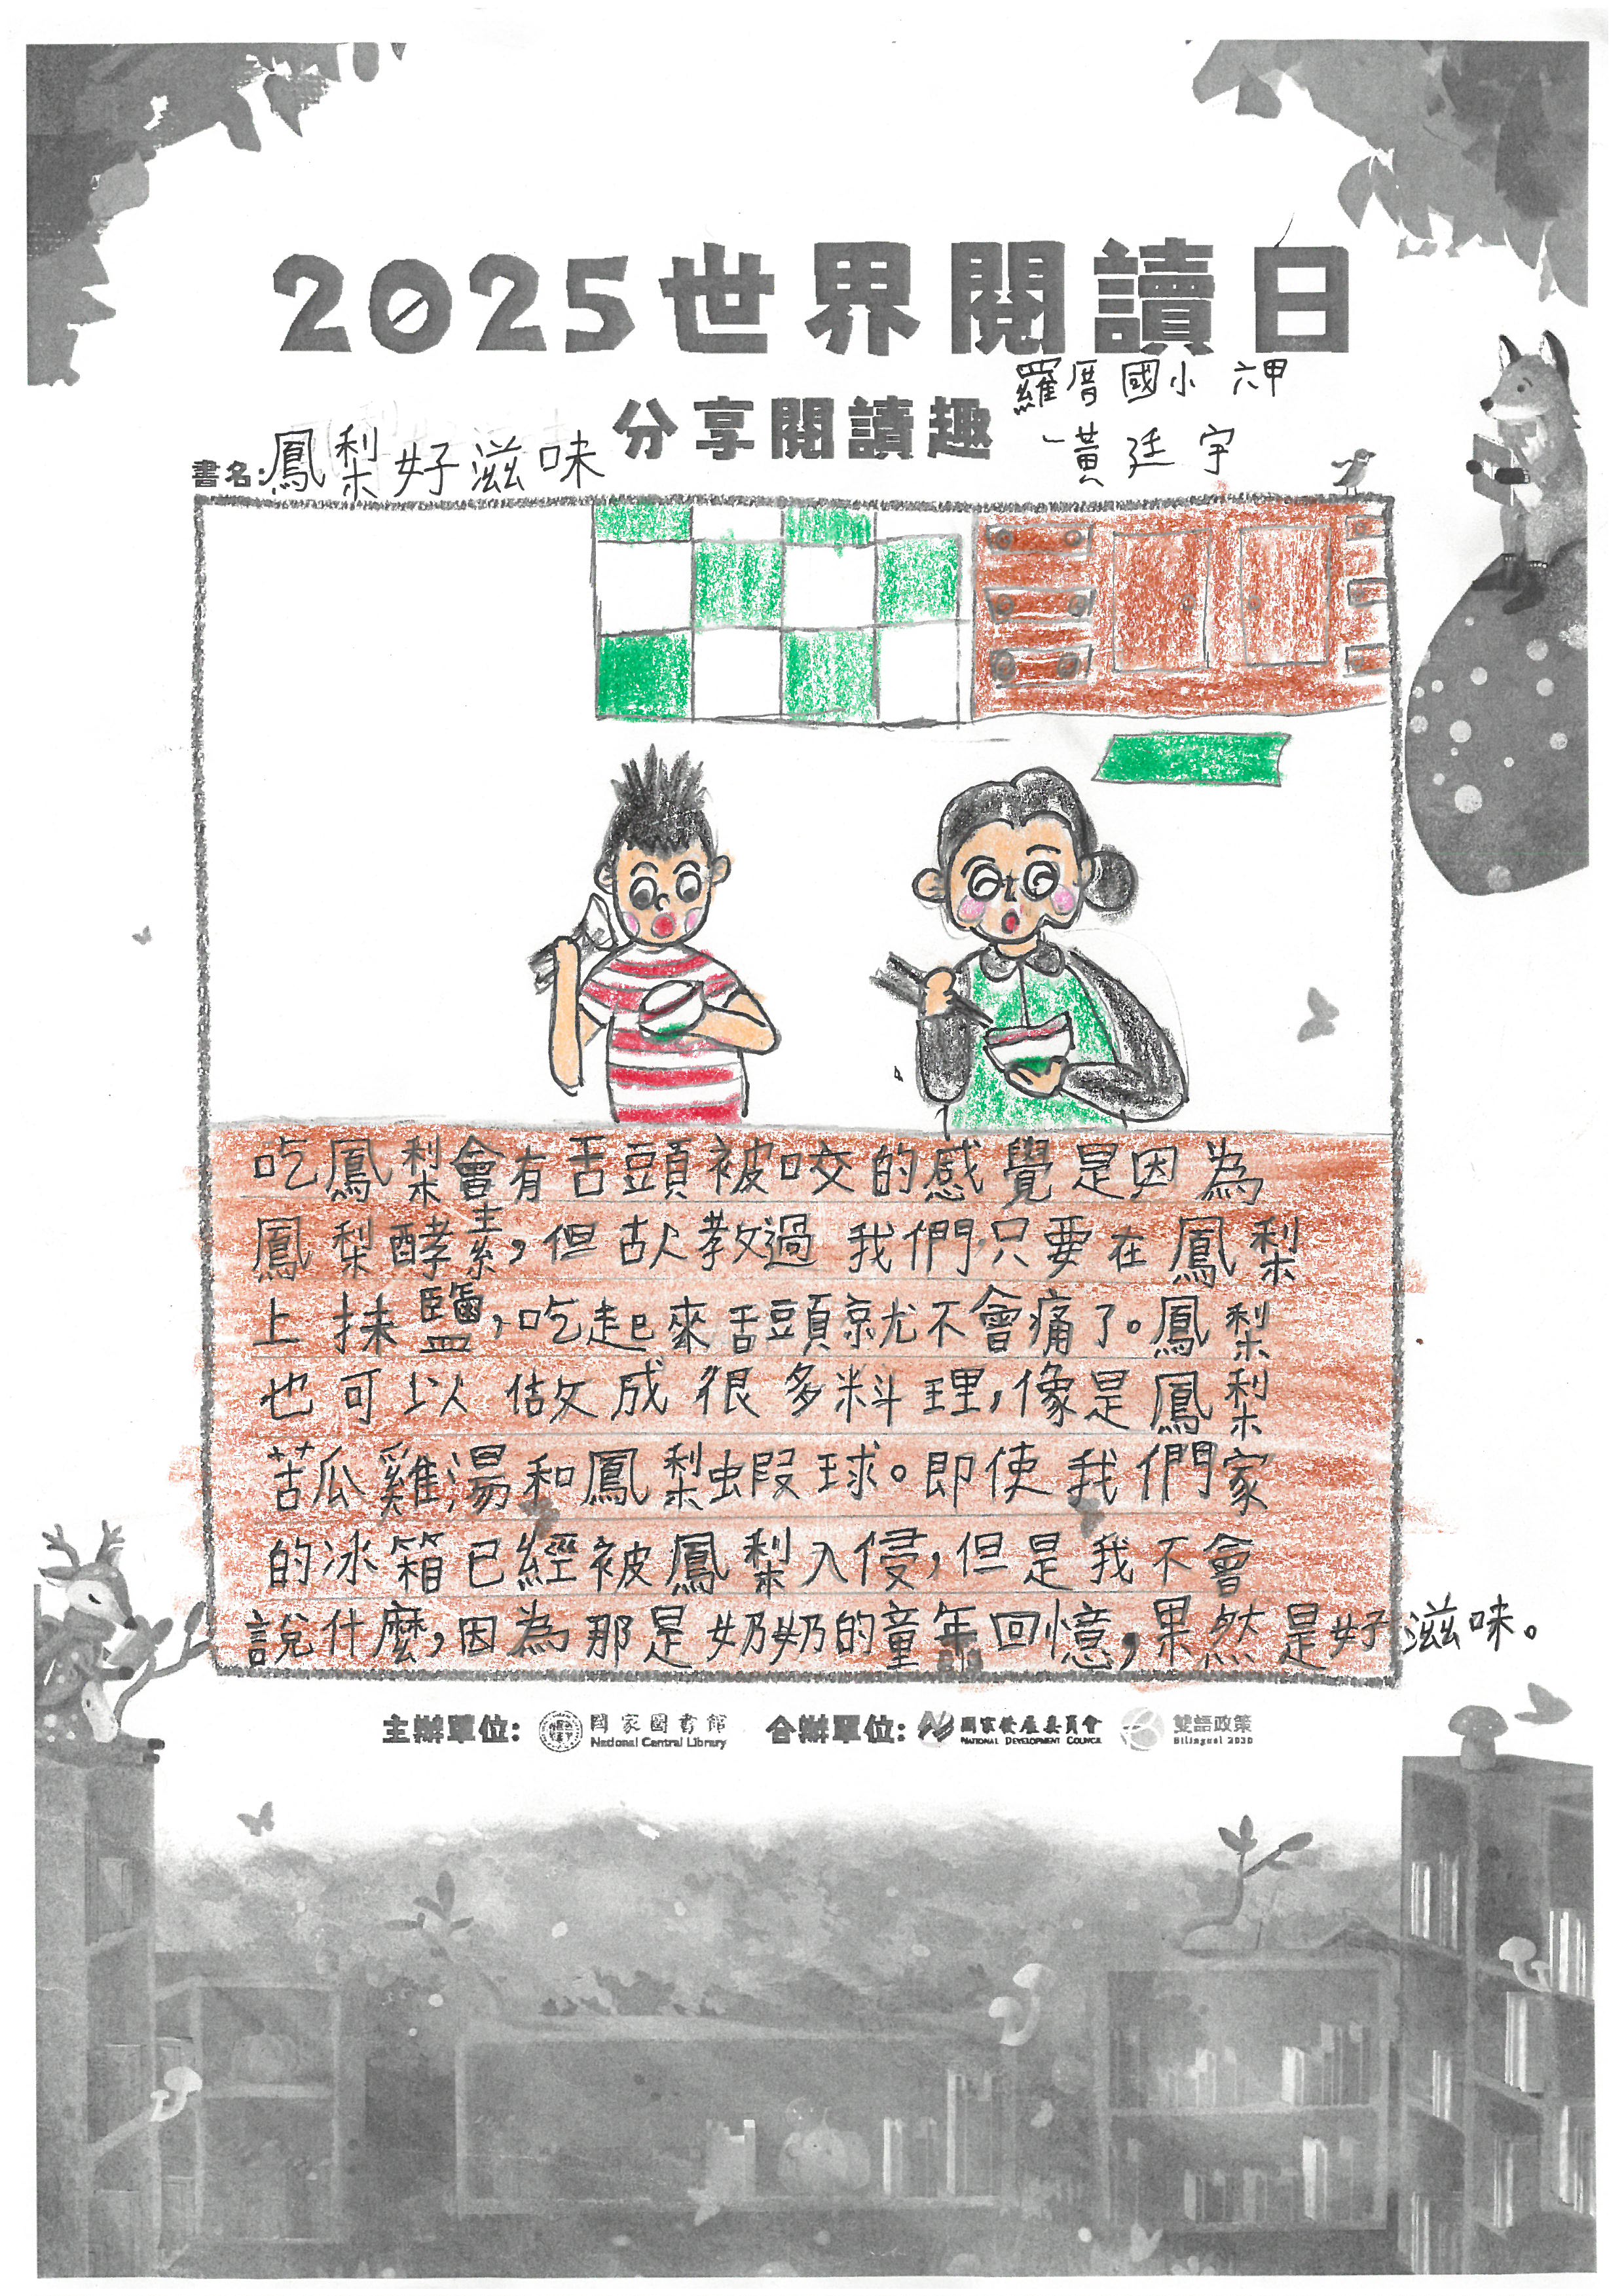 2025世界閱讀日
羅厝國小 六甲
分享閱讀趣
黃廷宇
書名:鳳梨好滋味
吃鳳梨會有舌頭被咬的感覺是因為
鳳梨酵素,但故教過我們,只要在鳳梨
上抹鹽,吃起來舌頭就不會痛了。鳳梨
也可以做成很多料理,像是鳳梨
苦瓜雞湯和鳳梨蝦球。即使我們家
的冰箱已經被鳳梨入侵,但是我不會
說什麼,因為那是奶奶的童年回憶,果然是好滋味。
主辦單位: 國家圖書館 National Central Library 合辦單位: 國家發展委員會 NATIONAL DEVELOPMENT COUNCIL 雙語政策 Bilingual 2030